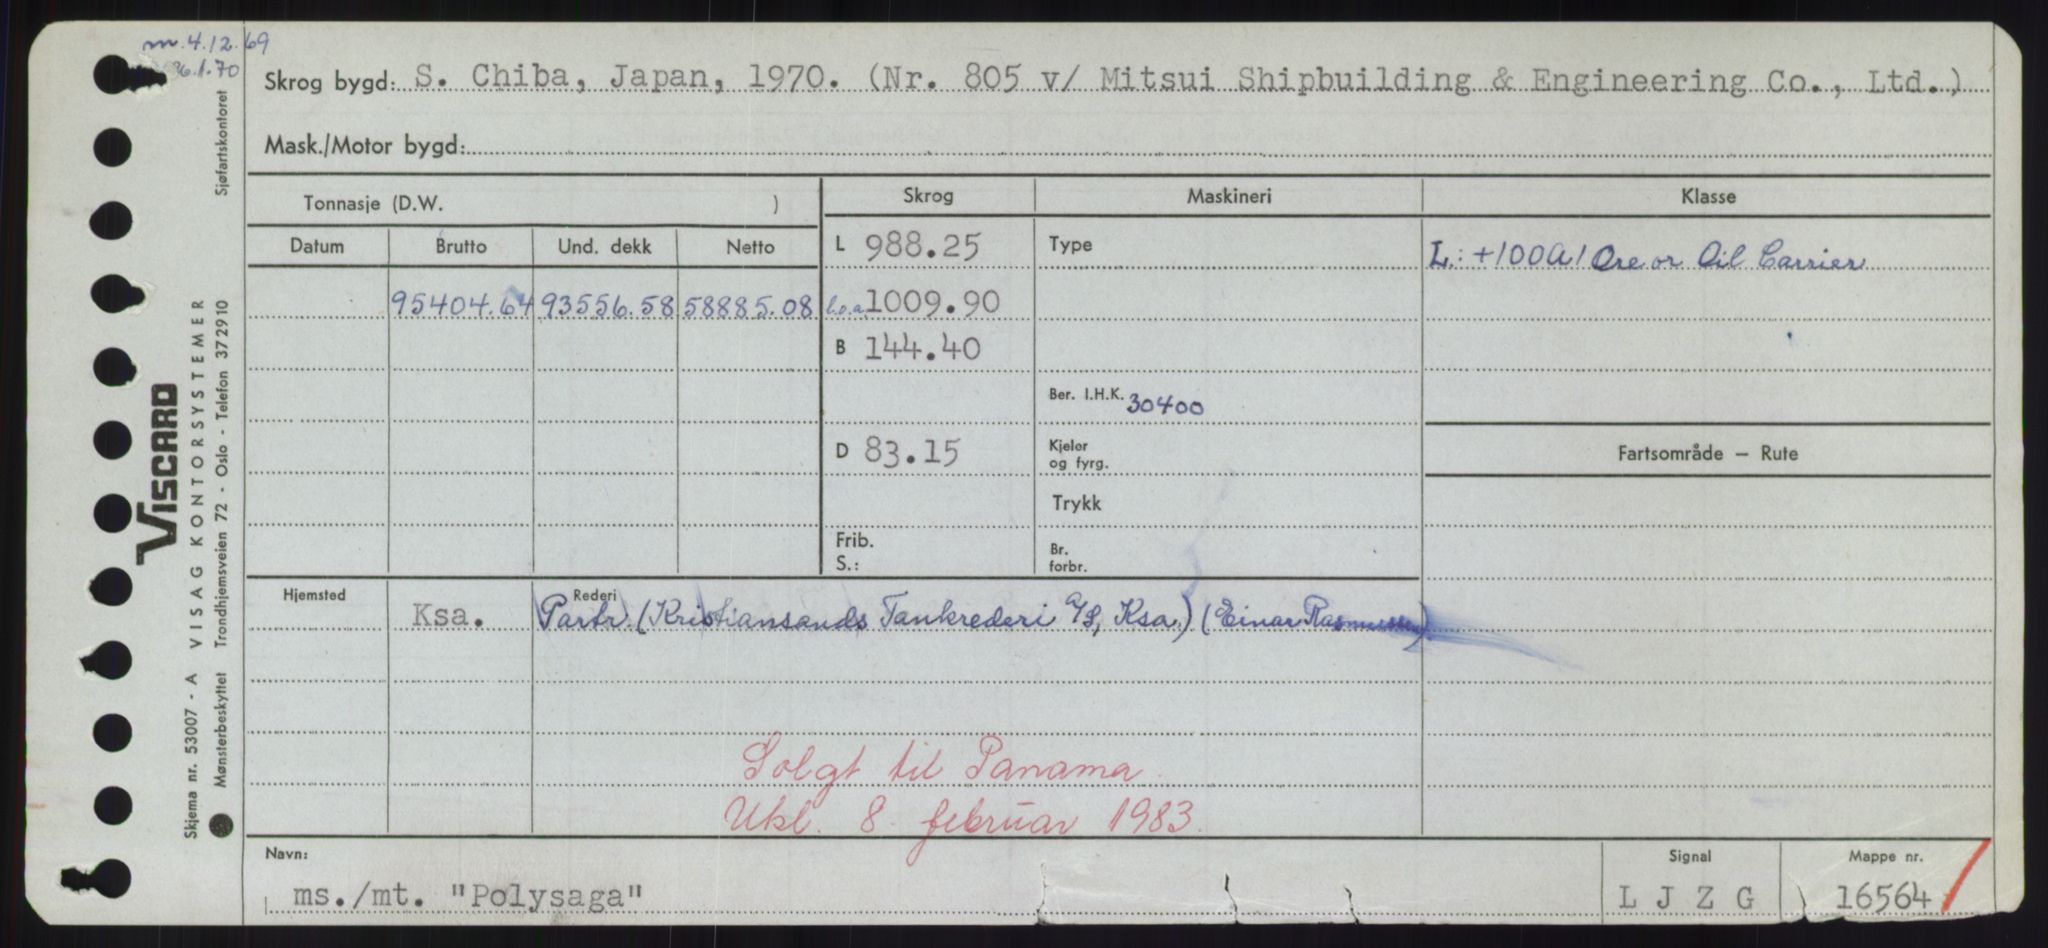 m. 4.12.69
6.1.70
Skrog bygd: S. Chiba, Japan, 1970. (Nr. 805 v/ Mitsui Shipbuilding & Engineering Co., Ltd.)
Mask./Motor bygd:
Tonnasje (D.W. )
Skrog
Maskineri
Klasse
Datum
Brutto
Und. dekk
Netto
L 988.25
Type
L.: +100A1 Ore or Oil Carrier
95404.64
93556.58
58885.08
l.o.a. 1009.90
B 144.40
Ber. I.H.K. 30400
D 83.15
Kjeler
og fyrg.
Fartsområde – Rute
Trykk
Frib.
S.:
Br.
forbr.
Hjemsted
Ksa.
Rederi
Partr. (Kristiansands Tankrederi A/S, Ksa.) (Einar Rasmussen)
Solgt til Panama.
Ukl. 8. februar 1983.
Navn:
ms./mt. "Polysaga"
Signal
L J Z G
Mappe nr.
16564
VISCARD
VISAG KONTORSYSTEMER
Sjøfartskontoret
Trondhjemsveien 72 - Oslo - Telefon 372910
Skjema nr. 53007 - A
Mønsterbeskyttet